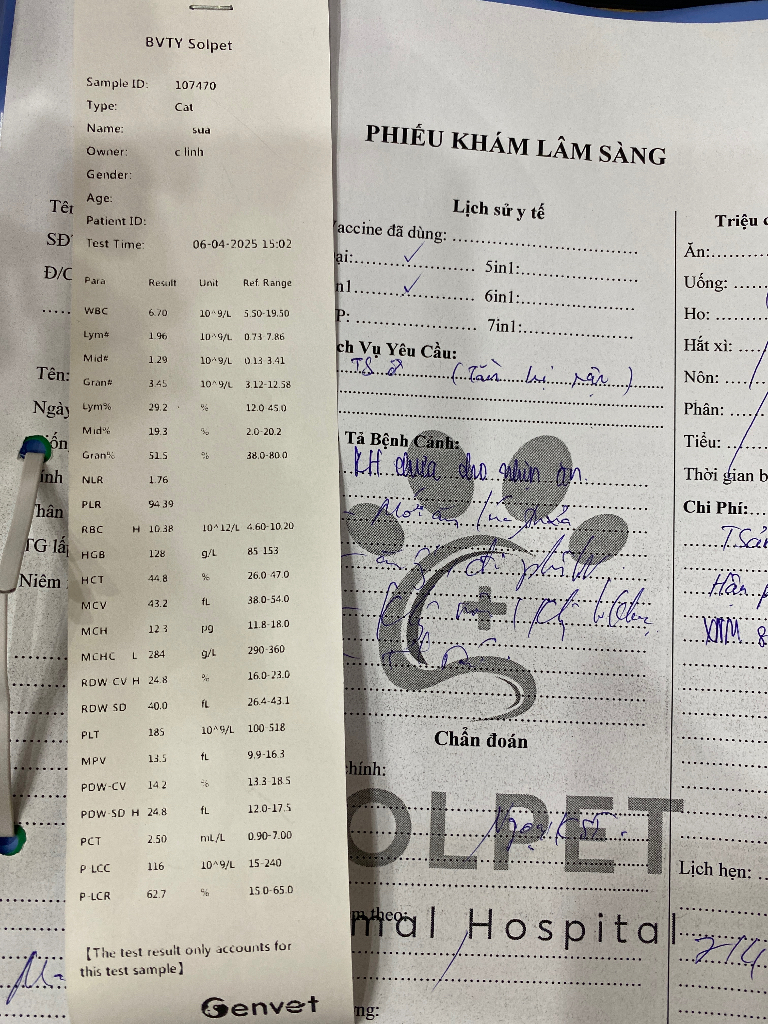 BVTY Solpet
Sample ID: 107470
Type: Cat
Name: sua
Owner: c linh
Gender:
Age:
Patient ID:
Test Time: 06-04-2025 15:02
Para Result Unit Ref. Range
WBC 6.70 10^9/L 5.50-19.50
Lym# 1.96 10^9/L 0.73-7.86
Mid# 1.29 10^9/L 0.13-3.41
Gran# 3.45 10^9/L 3.12-12.58
Lym% 29.2 % 12.0-45.0
Mid% 19.3 % 2.0-20.2
Gran% 51.5 % 38.0-80.0
NLR 1.76
PLR 94.39
RBC H 10.38 10^12/L 4.60-10.20
HGB 128 g/L 85-153
HCT 44.8 % 26.0-47.0
MCV 43.2 fL 38.0-54.0
MCH 12.3 pg 11.8-18.0
MCHC L 284 g/L 290-360
RDW-CV H 24.8 % 16.0-23.0
RDW-SD 40.0 fL 26.4-43.1
PLT 185 10^9/L 100-518
MPV 13.5 fL 9.9-16.3
PDW-CV 14.2 % 13.3-18.5
PDW-SD H 24.8 fL 12.0-17.5
PCT 2.50 mL/L 0.90-7.00
P-LCC 116 10^9/L 15-240
P-LCR 62.7 % 15.0-65.0
【The test result only accounts for
this test sample】
Genvet
Tên:
Ngày
TG
Niêm
PHIẾU KHÁM LÂM SÀNG
Lịch sử y tế
accine đã dùng:
ại: ✓ 5in1:
n1 ✓ 6in1:
P: 7in1:
ch Vụ Yêu Cầu:
TS ♂
Tả Bệnh Cảnh:
KH chưa cho nhịn ăn
Chẩn đoán
chính:
OLPET
m theo:
mal Hospital
ng:
Triệu c
Ăn:
Uống:
Ho:
Hắt xì:
Nôn:
Phân:
Tiểu:
Thời gian b
Chi Phí:
Lịch hẹn: